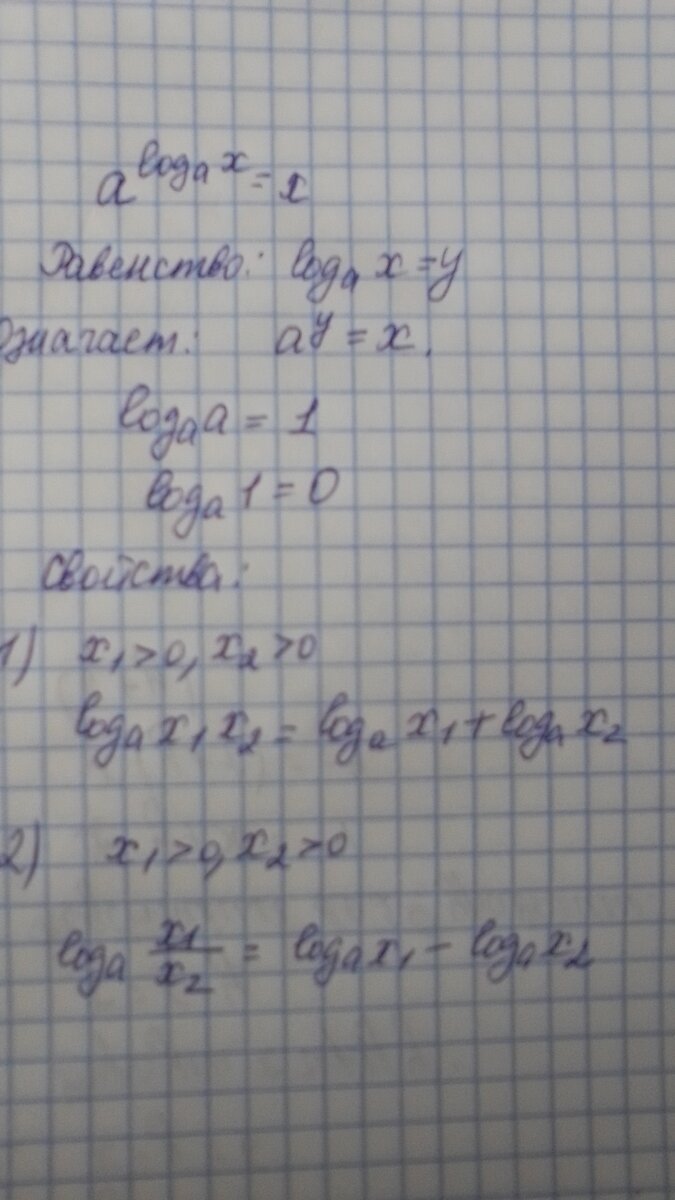 a^(log_a x) = x
Равенство: log_a x = y
Означает: a^y = x.
log_a a = 1
log_a 1 = 0
Свойства:
1) x₁ > 0, x₂ > 0
log_a x₁ x₂ = log_a x₁ + log_a x₂
2) x₁ > 0, x₂ > 0
log_a x₁/x₂ = log_a x₁ - log_a x₂